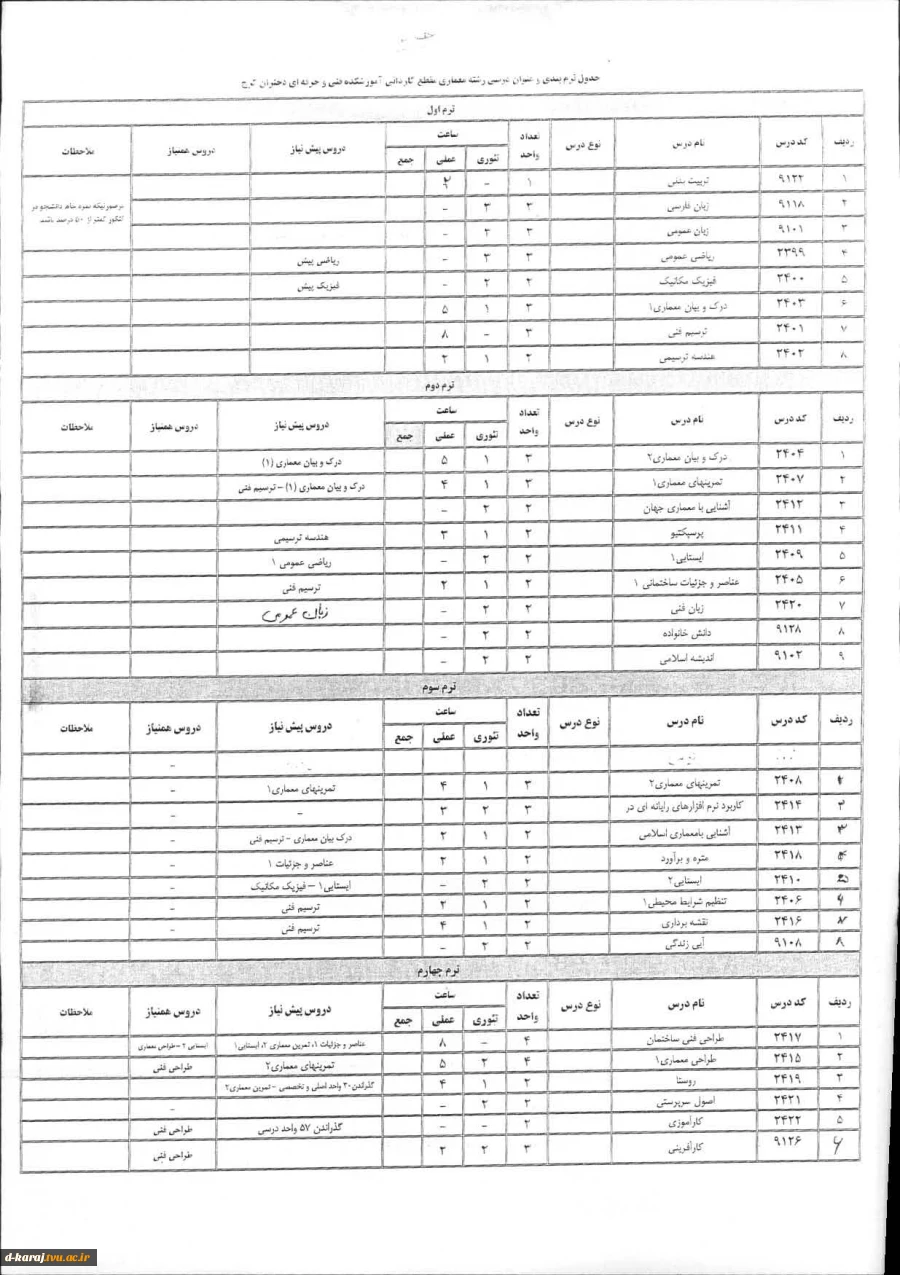 جدول ترم بندی و عنوان دروس رشته معماری مقطع کاردانی آموزشکده فنی و حرفه ای دختران کرج
ترم اول
ردیف | کد درس | نام درس | نوع درس | تعداد واحد | ساعت | تئوری | عملی | جمع | دروس پیش نیاز | دروس همنیاز | ملاحظات
۱ | ۹۱۲۲ | تربیت بدنی | ۱ | - | ۲
۲ | ۹۱۱۸ | زبان فارسی | ۳ | ۳ | -
۳ | ۹۱۰۱ | زبان عمومی | ۳ | ۳ | -
۴ | ۲۳۹۹ | ریاضی عمومی | ۳ | ۳ | - | ریاضی پیش
۵ | ۲۴۰۰ | فیزیک مکانیک | ۲ | ۲ | - | فیزیک پیش
۶ | ۲۴۰۳ | درک و بیان معماری۱ | ۳ | ۱ | ۵
۷ | ۲۴۰۱ | ترسیم فنی | ۳ | - | ۸
۸ | ۲۴۰۲ | هندسه ترسیمی | ۲ | ۱ | ۲
درصورتیکه نمره خام دانشجو در
کنکور کمتر از ۵۰ درصد باشد
ترم دوم
ردیف | کد درس | نام درس | نوع درس | تعداد واحد | ساعت | تئوری | عملی | جمع | دروس پیش نیاز | دروس همنیاز | ملاحظات
۱ | ۲۴۰۴ | درک و بیان معماری۲ | ۳ | ۱ | ۵ | درک و بیان معماری (۱)
۲ | ۲۴۰۷ | تمرینهای معماری۱ | ۳ | ۱ | ۴ | درک و بیان معماری (۱) – ترسیم فنی
۳ | ۲۴۱۲ | آشنایی با معماری جهان | ۲ | ۲ | -
۴ | ۲۴۱۱ | پرسپکتیو | ۲ | ۱ | ۳ | هندسه ترسیمی
۵ | ۲۴۰۹ | ایستایی۱ | ۲ | ۲ | - | ریاضی عمومی ۱
۶ | ۲۴۰۵ | عناصر و جزئیات ساختمانی ۱ | ۲ | ۱ | ۲ | ترسیم فنی
۷ | ۲۴۲۰ | زبان فنی | ۲ | ۲ | - | زبان عمومی
۸ | ۹۱۲۸ | دانش خانواده | ۲ | ۲ | -
۹ | ۹۱۰۲ | اندیشه اسلامی | ۲ | ۲ | -
ترم سوم
ردیف | کد درس | نام درس | نوع درس | تعداد واحد | ساعت | تئوری | عملی | جمع | دروس پیش نیاز | دروس همنیاز | ملاحظات
-
۱ | ۲۴۰۸ | تمرینهای معماری۲ | ۳ | ۱ | ۴ | تمرینهای معماری۱ | -
۲ | ۲۴۱۴ | کاربرد نرم افزارهای رایانه ای در | ۳ | ۲ | ۳ | - | -
۳ | ۲۴۱۳ | آشنایی بامعماری اسلامی | ۲ | ۱ | ۲ | درک بیان معماری – ترسیم فنی | -
۴ | ۲۴۱۸ | متره و برآورد | ۲ | ۱ | ۲ | عناصر و جزئیات ۱ | -
۵ | ۲۴۱۰ | ایستایی۲ | ۲ | ۲ | - | ایستایی۱ – فیزیک مکانیک | -
۶ | ۲۴۰۶ | تنظیم شرایط محیطی۱ | ۲ | ۱ | ۲ | ترسیم فنی | -
۷ | ۲۴۱۶ | نقشه برداری | ۲ | ۱ | ۴ | ترسیم فنی | -
۸ | ۹۱۰۸ | آیی زندگی | ۲ | ۲ | - | -
ترم چهارم
ردیف | کد درس | نام درس | نوع درس | تعداد واحد | ساعت | تئوری | عملی | جمع | دروس پیش نیاز | دروس همنیاز | ملاحظات
۱ | ۲۴۱۷ | طراحی فنی ساختمان | ۴ | - | ۸ | عناصر و جزئیات ۱، تمرین معماری ۲، ایستایی۱ | ایستایی ۲ – طراحی معماری
۲ | ۲۴۱۵ | طراحی معماری۱ | ۴ | ۲ | ۵ | تمرینهای معماری۲ | طراحی فنی
۳ | ۲۴۱۹ | روستا | ۲ | ۱ | ۴ | گذراندن ۲۰ واحد اصلی و تخصصی – تمرین معماری۲
۴ | ۲۴۲۱ | اصول سرپرستی | ۲ | ۲ | - | -
۵ | ۲۴۲۲ | کارآموزی | ۲ | - | - | گذراندن ۵۷ واحد درسی | طراحی فنی
۶ | ۹۱۲۶ | کارآفرینی | ۳ | ۲ | ۲ | طراحی فنی
d-karaj.tvu.ac.ir